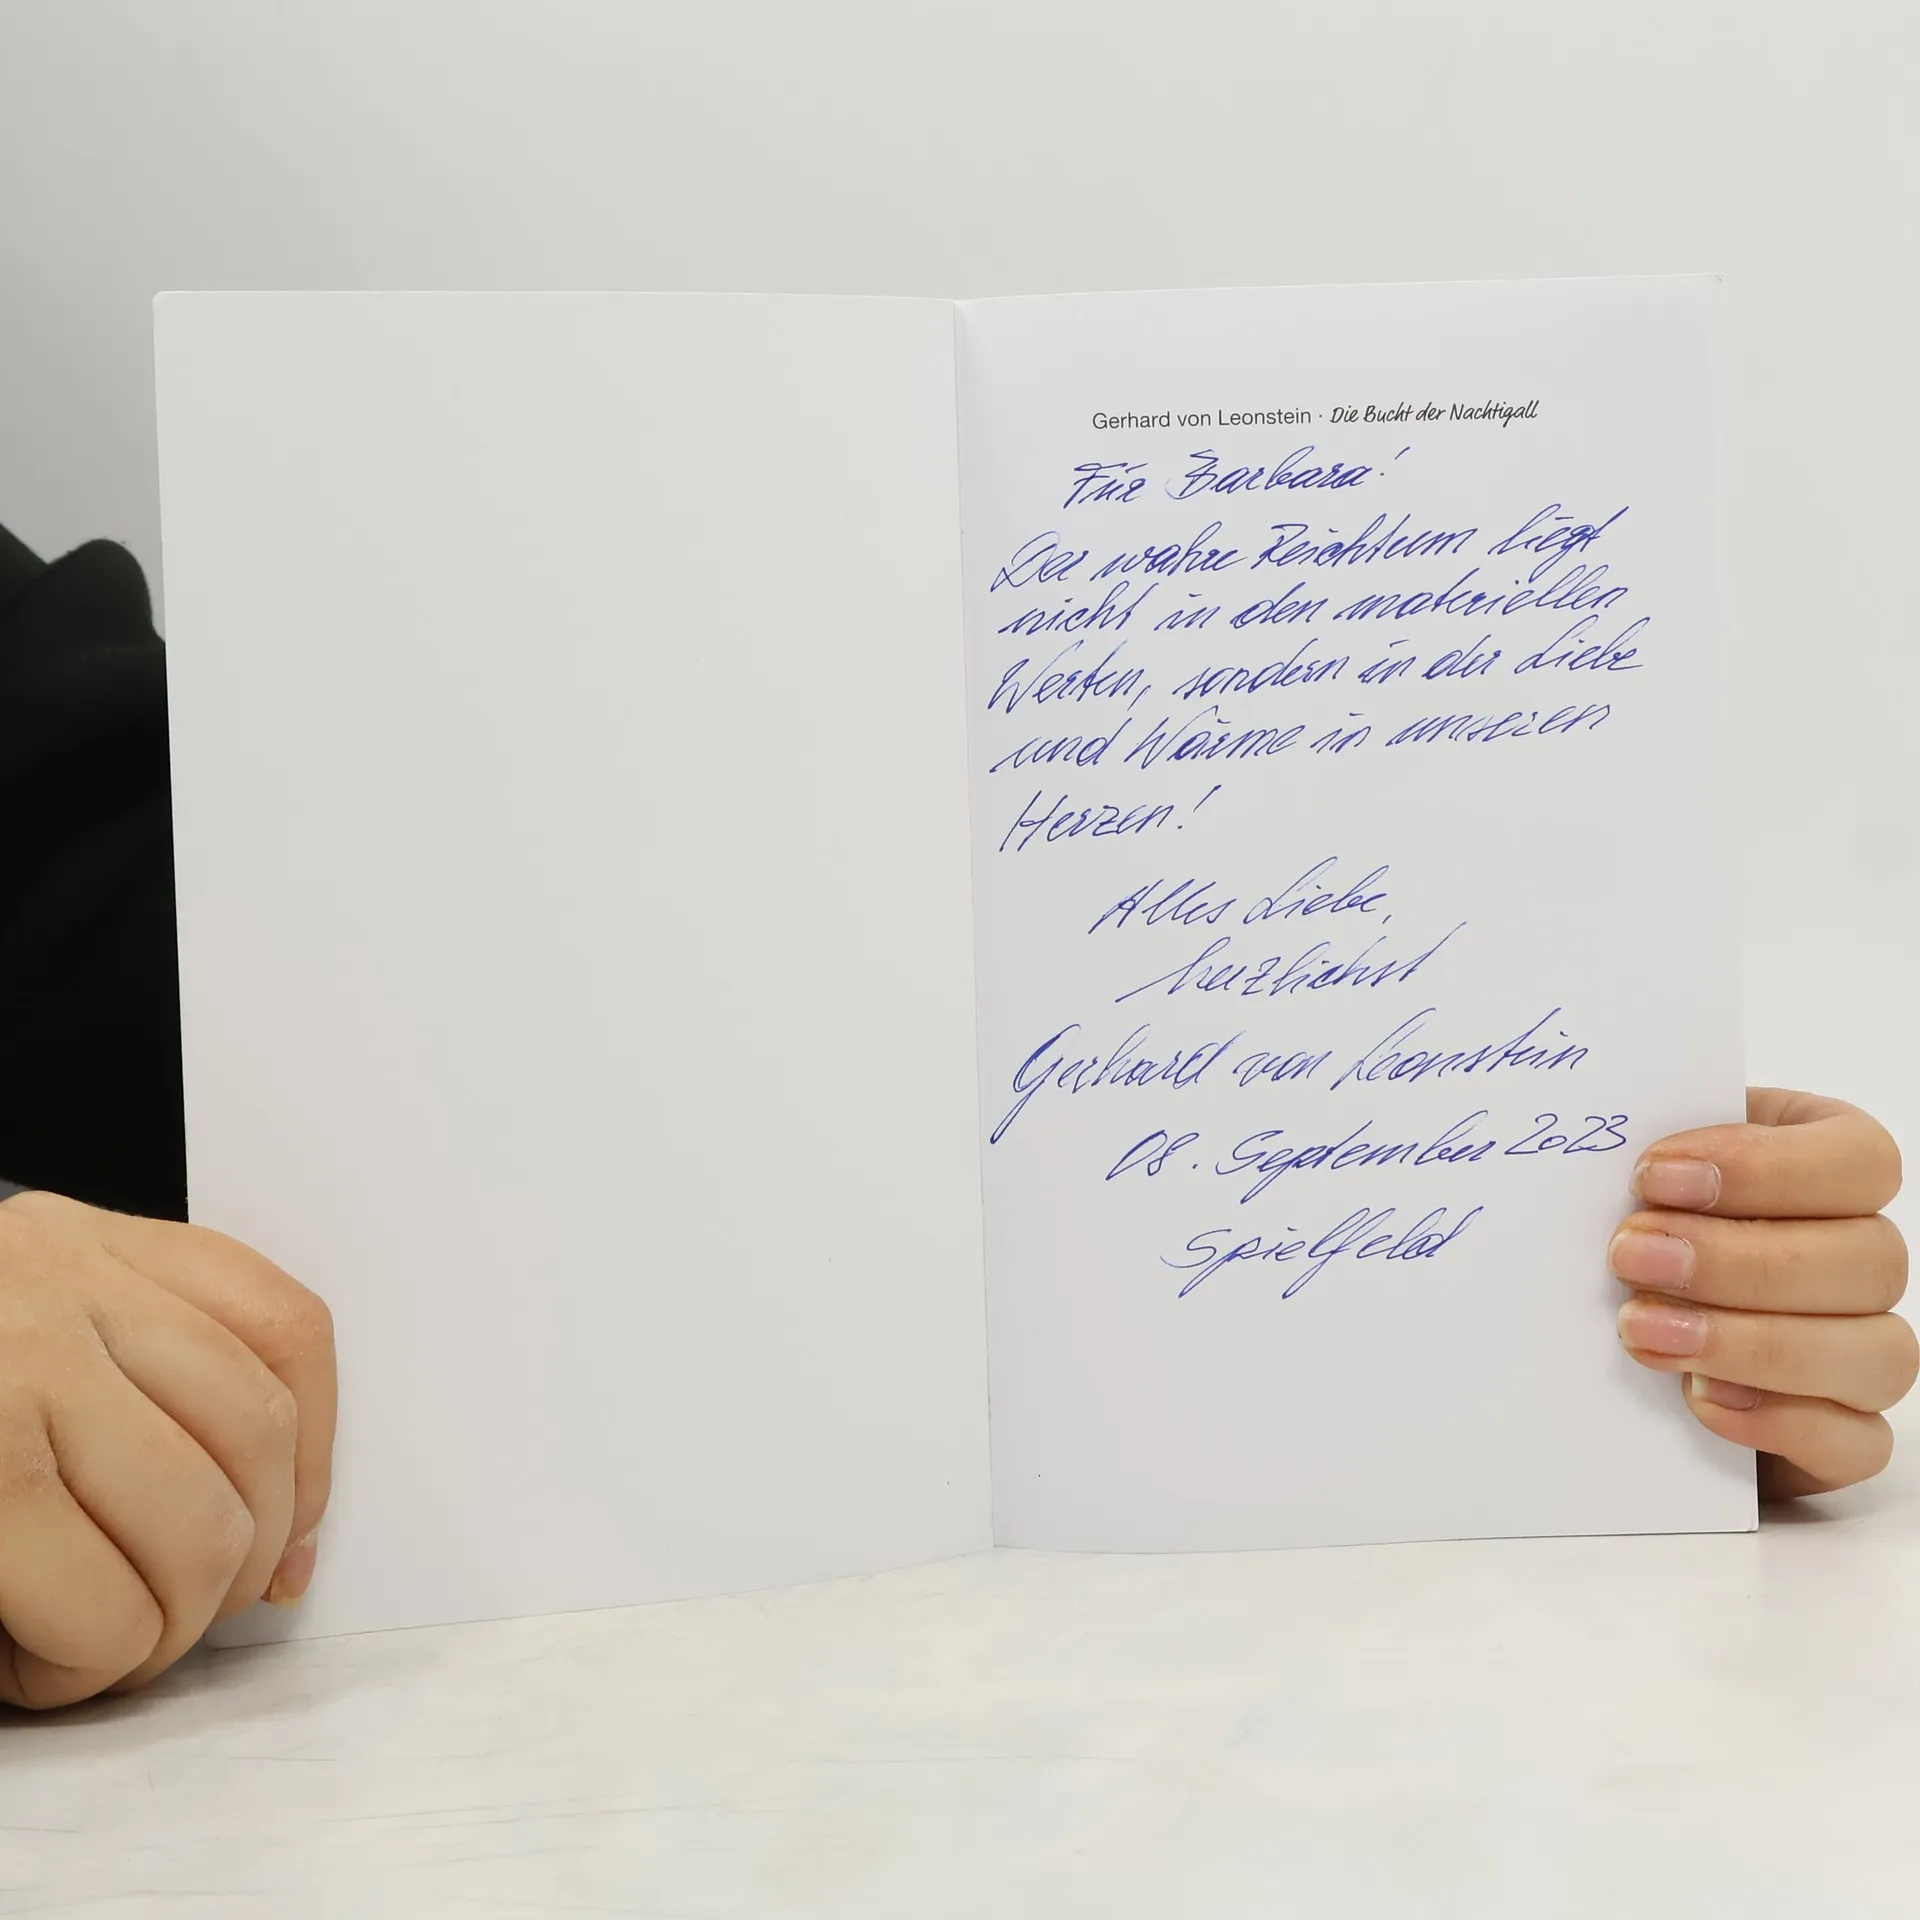 Gerhard von Leonstein · Die Bucht der Nachtigall
Für Barbara!
Der wahre Reichtum liegt
nicht in den materiellen
Werten, sondern in der Liebe
und Wärme in unseren
Herzen!
Alles Liebe,
herzlichst
Gerhard von Leonstein
08. September 2023
Spielfeld